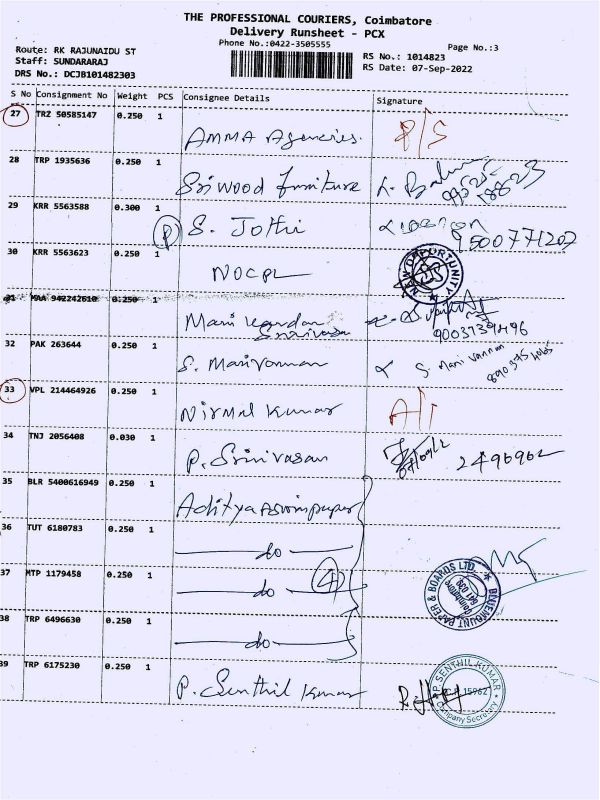 THE PROFESSIONAL COURIERS, Coimbatore
Delivery Runsheet - PCX
Phone No.:0422-3505555
Page No.:3
Route: RK RAJUNAIDU ST
RS No.: 1014823
Staff: SUNDARARAJ
RS Date: 07-Sep-2022
DRS No.: DCJB101482303
S No Consignment No Weight PCS Consignee Details Signature
27 TRZ 50585147 0.250 1
AMMA Agencies. P/S
28 TRP 1935636 0.250 1
Sri wood furniture
29 KRR 5563588 0.300 1
P S. Jothi
9500771202
30 KRR 5563623 0.250 1
NOCPL NEW OPPORTUNITY
31 MAA 942242610 0.250 1
Mani kandan
Srinivasa
9003739496
32 PAK 263644 0.250 1
S. Marivannan S Mari Vannan
33 VPL 214464926 0.250 1
Nirmal Kumar A/I
34 TNJ 2056408 0.030 1
P. Srinivasan 2496962
35 BLR 5400616949 0.250 1
Aditya Aswinpaper
36 TUT 6180783 0.250 1
do
37 MTP 1179458 0.250 1
do 4
BLUEMOUNT PAPER & BOARDS LTD.
Coimbatore
641 039
38 TRP 6496630 0.250 1
do
39 TRP 6175230 0.250 1
P. Senthil Kumar
P. SENTHIL KUMAR
C.P. 15962
Company Secretary